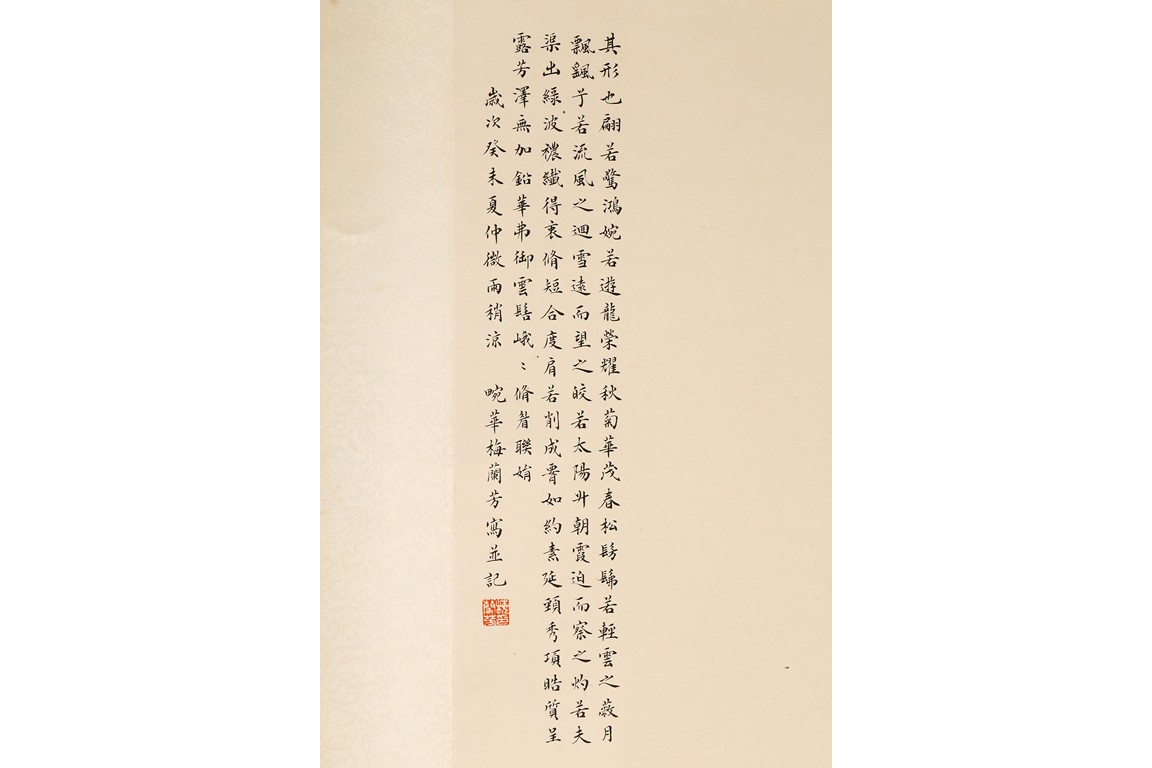 其形也翩若驚鴻婉若遊龍榮耀秋菊華茂春松髣髴若輕雲之蔽月
飄颻兮若流風之迴雪遠而望之皎若太陽升朝霞迫而察之灼若夫
渠出綠波襛纖得衷脩短合度肩若削成腰如約素延頸秀項晧質呈
露芳澤無加鉛華弗御雲髻峨〻脩眉聯娟
歲次癸未夏仲微雨稍涼 畹華梅蘭芳寫並記